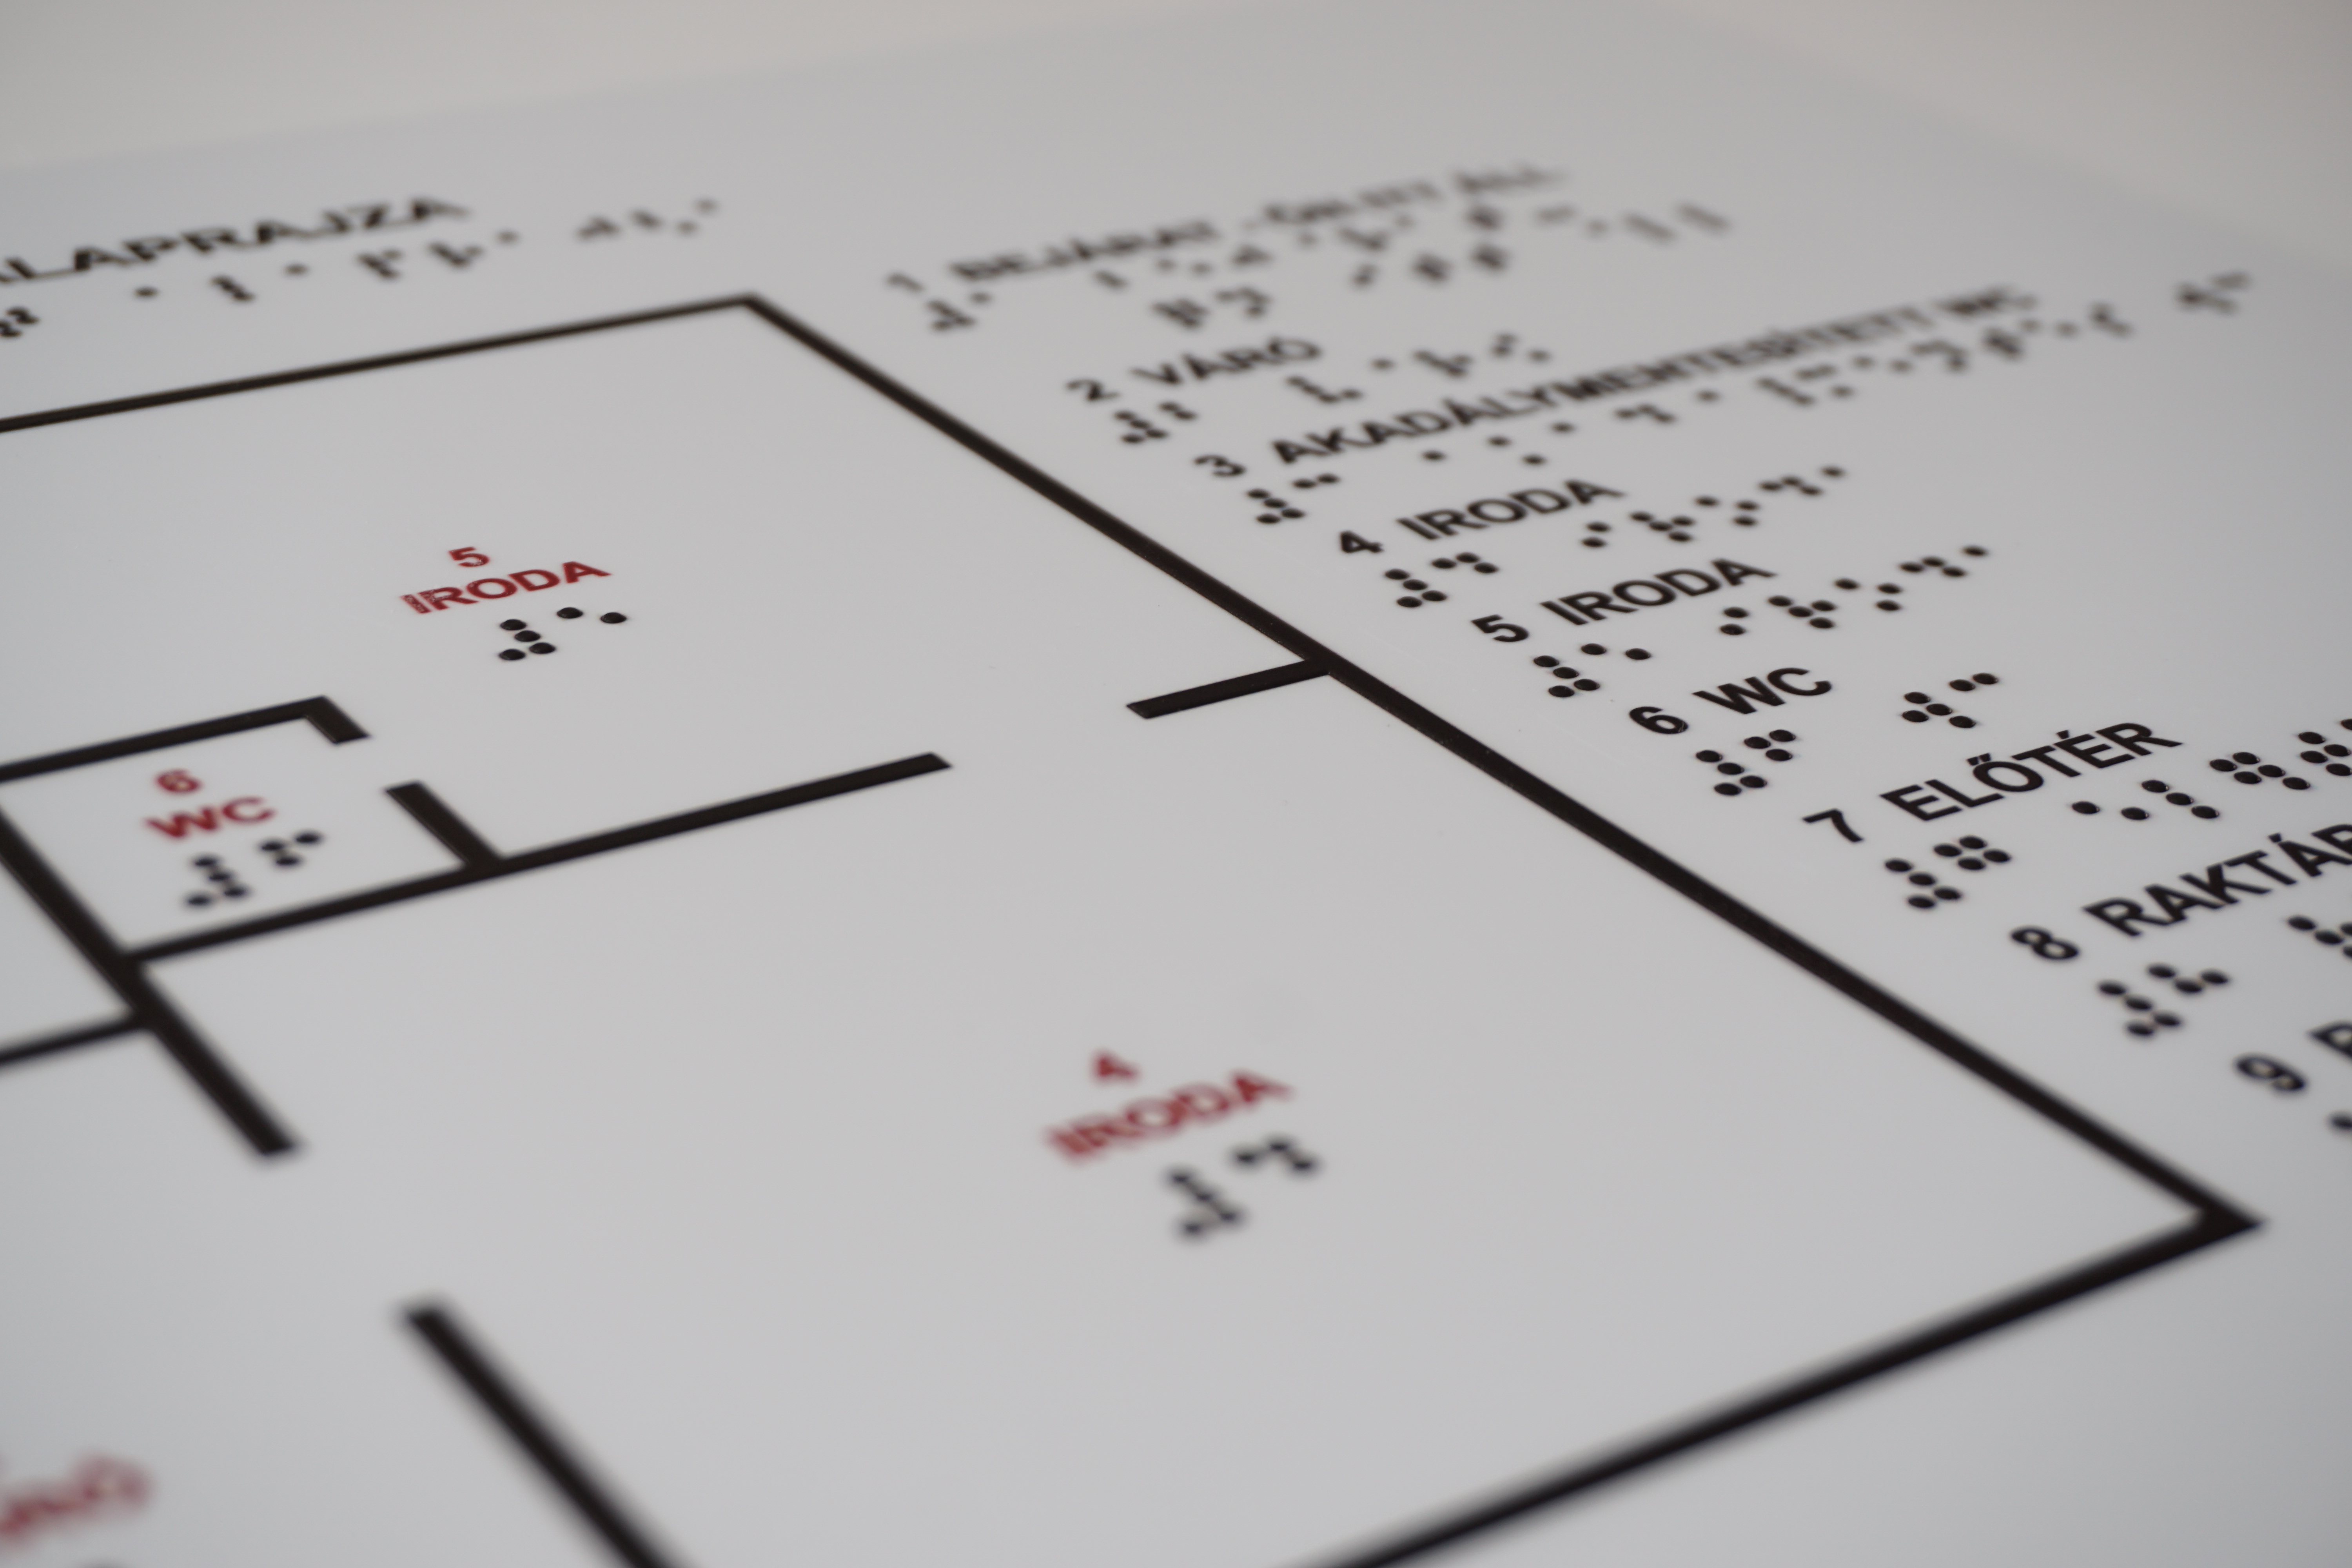 ALAPRAJZA
5
IRODA
6
WC
4
IRODA
1 BEJÁRAT -
2 VÁRÓ
3 AKADÁLYMENTESÍTETT WC
4 IRODA
5 IRODA
6 WC
7 ELŐTÉR
8 RAKTÁR
9